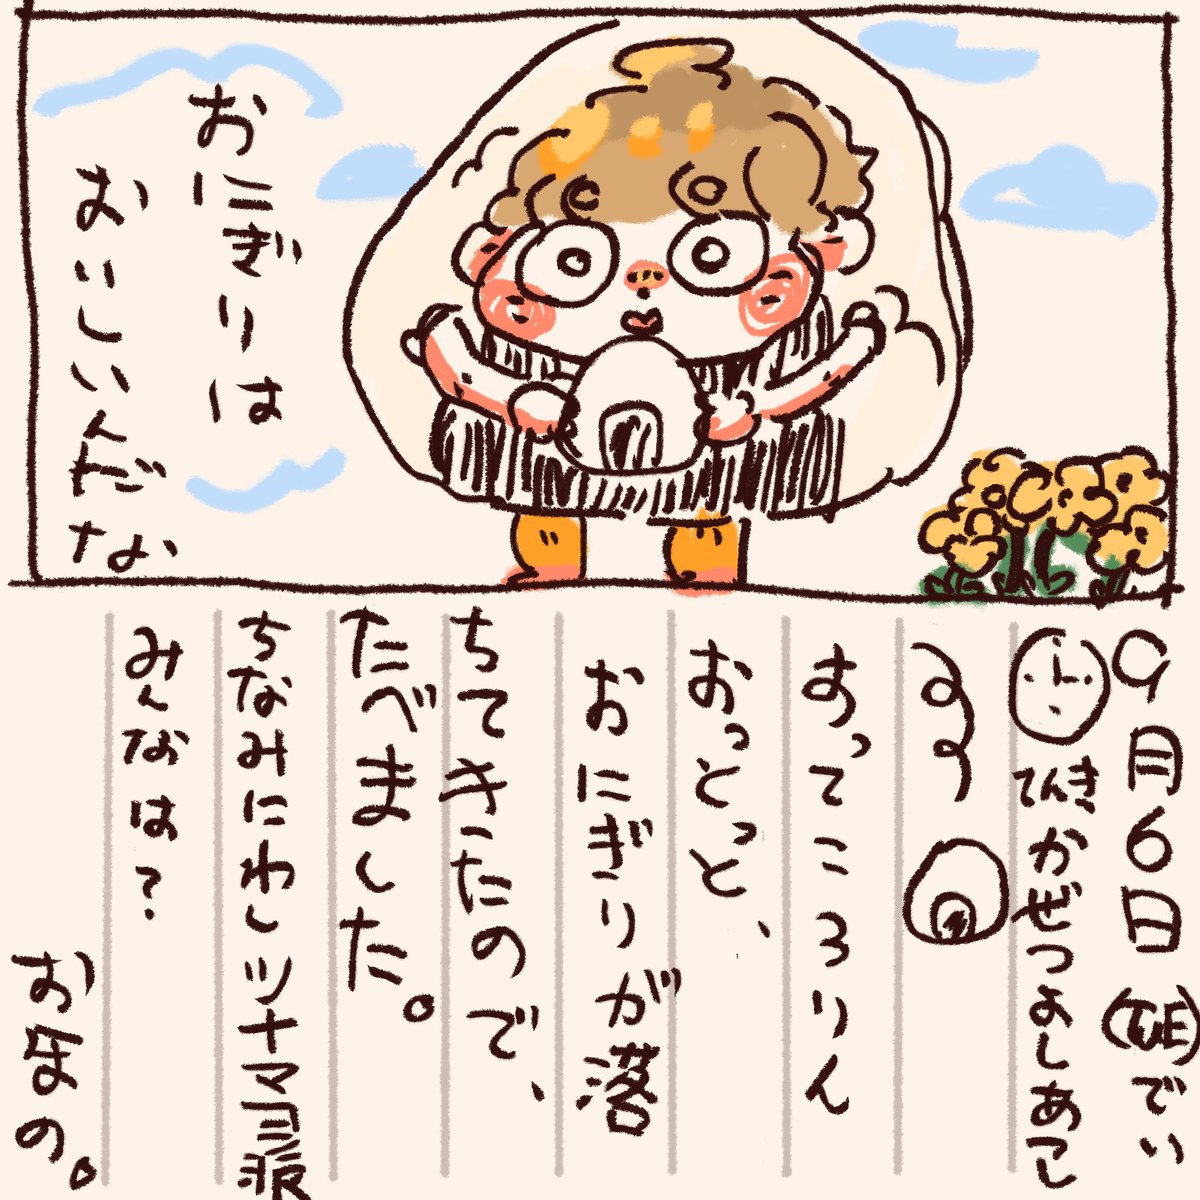 おにぎりは
おいしいんだな
9月6日(TUE)でい
てんき、かぜつよしあつし
すってころりん
おっとっと、
おにぎりが落
ちてきたので、
たべました。
ちなみにわしツナマヨ派
みんなは?